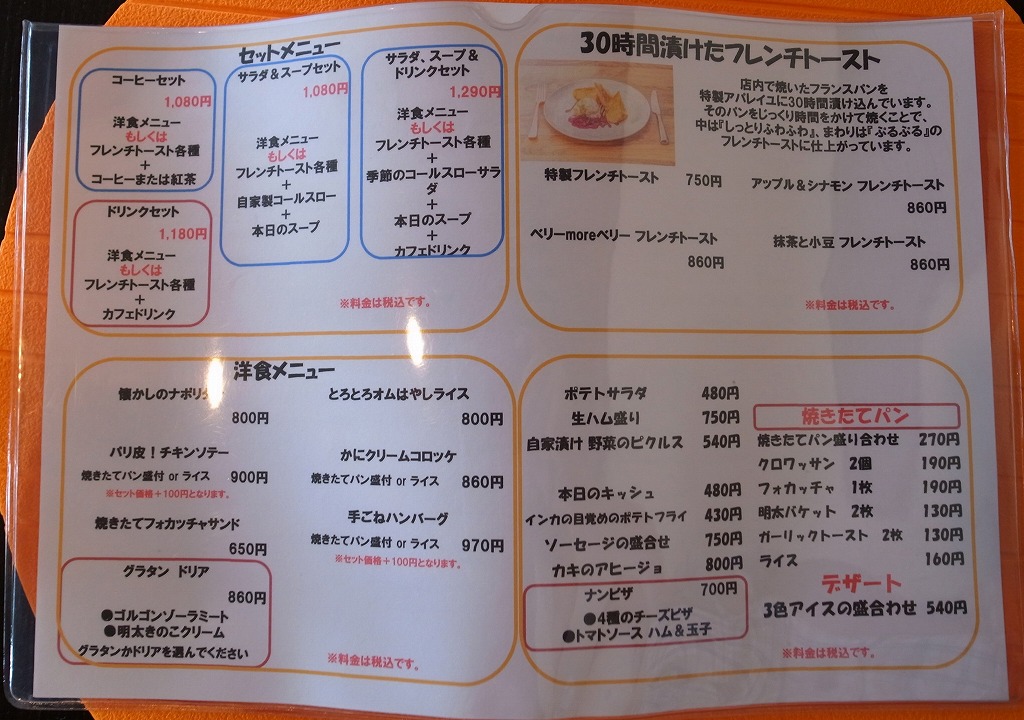 セットメニュー
コーヒーセット
1,080円
洋食メニュー
もしくは
フレンチトースト各種
+
コーヒーまたは紅茶
ドリンクセット
1,180円
洋食メニュー
もしくは
フレンチトースト各種
+
カフェドリンク
サラダ&スープセット
1,080円
洋食メニュー
もしくは
フレンチトースト各種
+
自家製コールスロー
+
本日のスープ
サラダ、スープ&
ドリンクセット
1,290円
洋食メニュー
もしくは
フレンチトースト各種
+
季節のコールスローサラ
ダ
+
本日のスープ
+
カフェドリンク
※料金は税込です。
30時間漬けたフレンチトースト
店内で焼いたフランスパンを
特製アパレイユに30時間漬け込んでいます。
そのパンをじっくり時間をかけて焼くことで、
中は『しっとりふわふわ』、まわりは『ぷるぷる』の
フレンチトーストに仕上がっています。
特製フレンチトースト 750円
アップル&シナモン フレンチトースト
860円
ベリーmoreベリー フレンチトースト
860円
抹茶と小豆 フレンチトースト
860円
※料金は税込です。
洋食メニュー
懐かしのナポリ
800円
とろとろオムはやしライス
800円
パリ皮!チキンソテー
焼きたてパン盛付 or ライス 900円
※セット価格+100円となります。
かにクリームコロッケ
焼きたてパン盛付 or ライス 860円
焼きたてフォカッチャサンド
650円
手ごねハンバーグ
焼きたてパン盛付 or ライス 970円
※セット価格+100円となります。
グラタン ドリア
860円
●ゴルゴンゾーラミート
●明太きのこクリーム
グラタンかドリアを選んでください
※料金は税込です。
ポテトサラダ 480円
生ハム盛り 750円
自家漬け 野菜のピクルス 540円
本日のキッシュ 480円
インカの目覚めのポテトフライ 430円
ソーセージの盛合せ 750円
カキのアヒージョ 800円
ナンピザ 700円
●4種のチーズピザ
●トマトソース ハム&玉子
焼きたてパン
焼きたてパン盛り合わせ 270円
クロワッサン 2個 190円
フォカッチャ 1枚 190円
明太バケット 2枚 130円
ガーリックトースト 2枚 130円
ライス 160円
デザート
3色アイスの盛合わせ 540円
※料金は税込です。